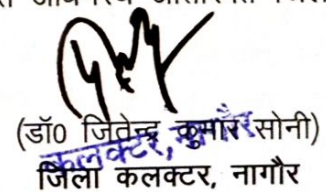 (डॉ0 जितेन्द्र कुमार सोनी)
कलक्टर, नागौर
जिला कलक्टर, नागौर